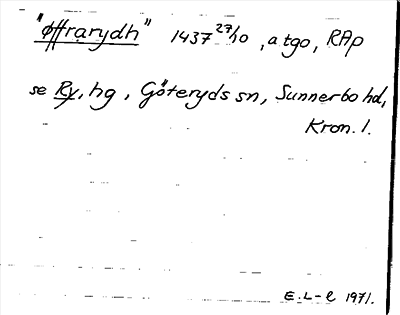 "øffrarydh" 1437 27/10, atgo, RAp
se Ry, hg, Göteryds sn, Sunnerbo hd,
Kron. l.
E. L-l 1971.